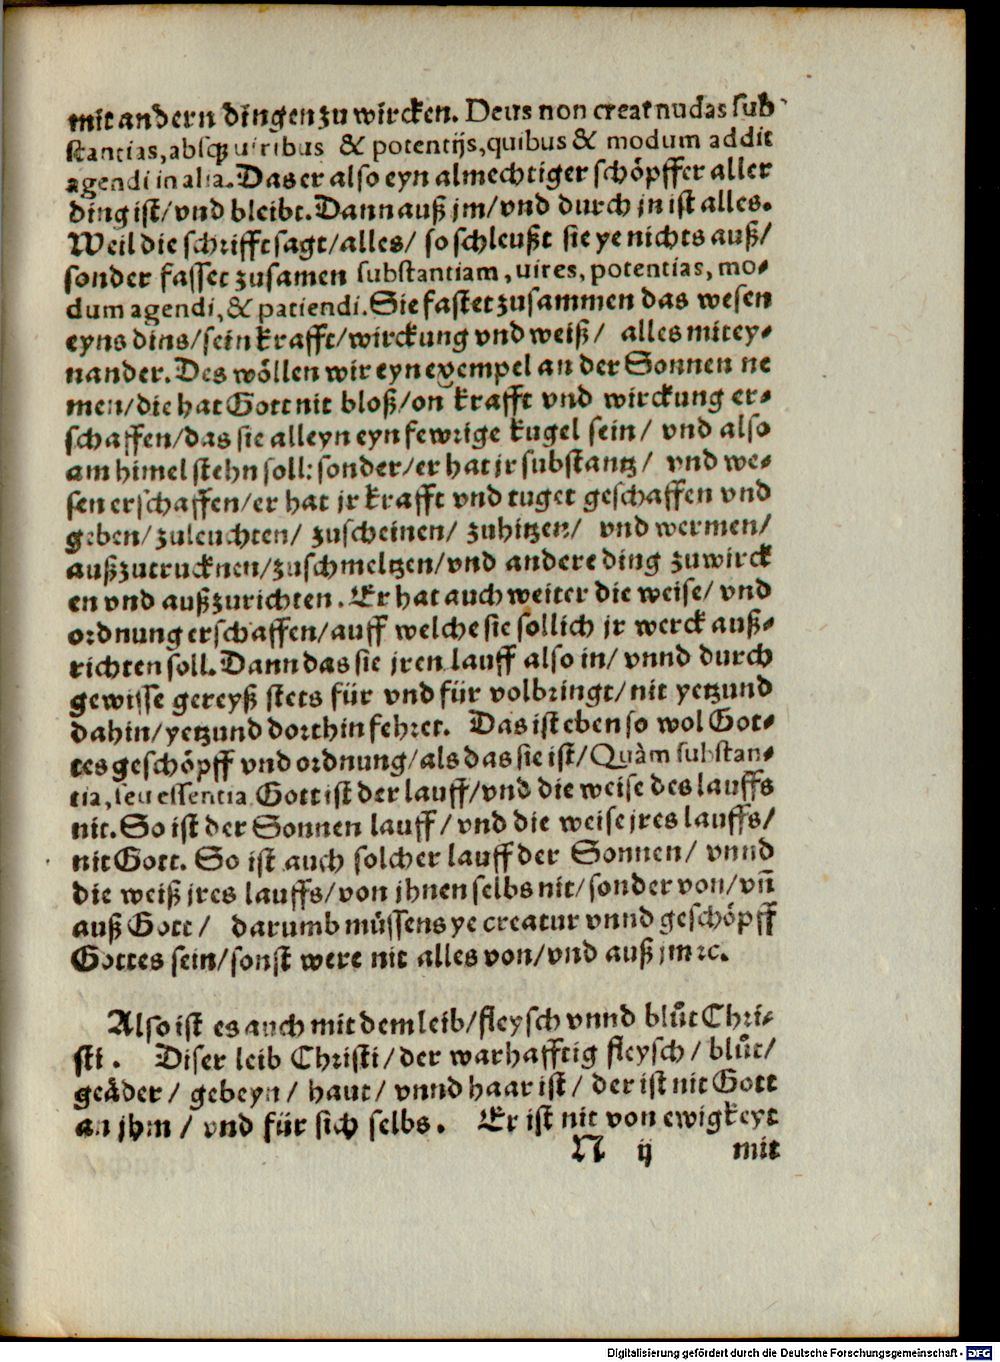 mit andern dingen zu wircken. Deus non creat nudas sub
stantias, absq; uiribus & potentijs, quibus & modum addit
agendi in alia. Das er also eyn almechtiger schöpffer aller
ding ist/vnd bleibt. Dann auß jm/vnd durch jn ist alles.
Weil die schrifft sagt/alles/ so schleußt sie ye nichts auß/
sonder fasset zusamen substantiam, uires, potentias, mo-
dum agendi, & patiendi. Sie fastet zusammen das wesen
eyns dins/sein krafft/wirckung vnd weiß/ alles mitey-
nander. Des wöllen wir eyn exempel an der Sonnen ne
men/die hat Gott nit bloß/on krafft vnd wirckung er-
schaffen/das sie alleyn eyn fewrige kugel sein/ vnd also
am himel stehn soll: sonder/er hat jr substantz/ vnd we-
sen erschaffen/er hat jr krafft vnd tuget geschaffen vnd
geben/zuleuchten/ zuscheinen/ zuhitzen/ vnd wermen/
außzutrucknen/zuschmeltzen/vnd andere ding zuwirck
en vnd außzurichten. Er hat auch weiter die weise/ vnd
ordnung erschaffen/auff welche sie sollich jr werck auß-
richten soll. Dann das sie jren lauff also in/ vnnd durch
gewisse gereyß stets für vnd für volbringt/nit yetzund
dahin/yetzund dorthin fehret. Das ist eben so wol Got-
tes geschöpff vnd ordnung/als das sie ist/Quàm substan-
tia, seu essentia. Gott ist der lauff/vnd die weise des lauffs
nit. So ist der Sonnen lauff/vnd die weise jres lauffs/
nit Gott. So ist auch solcher lauff der Sonnen/ vnnd
die weiß jres lauffs/von jhnen selbs nit/sonder von/vñ
auß Gott/ darumb müssens ye creatur vnnd geschöpff
Gottes sein/sonst were nit alles von/vnd auß jm ꝛc.
Also ist es auch mit dem leib/fleysch vnnd blůt Chri-
sti. Diser leib Christi/der warhafftig fleysch/blůt/
geäder/ gebeyn/ haut/ vnnd haar ist/ der ist nit Gott
an jhm/ vnd für sich selbs. Er ist nit von ewigkeyt
N ij mit
Digitalisierung gefördert durch die Deutsche Forschungsgemeinschaft - DFG